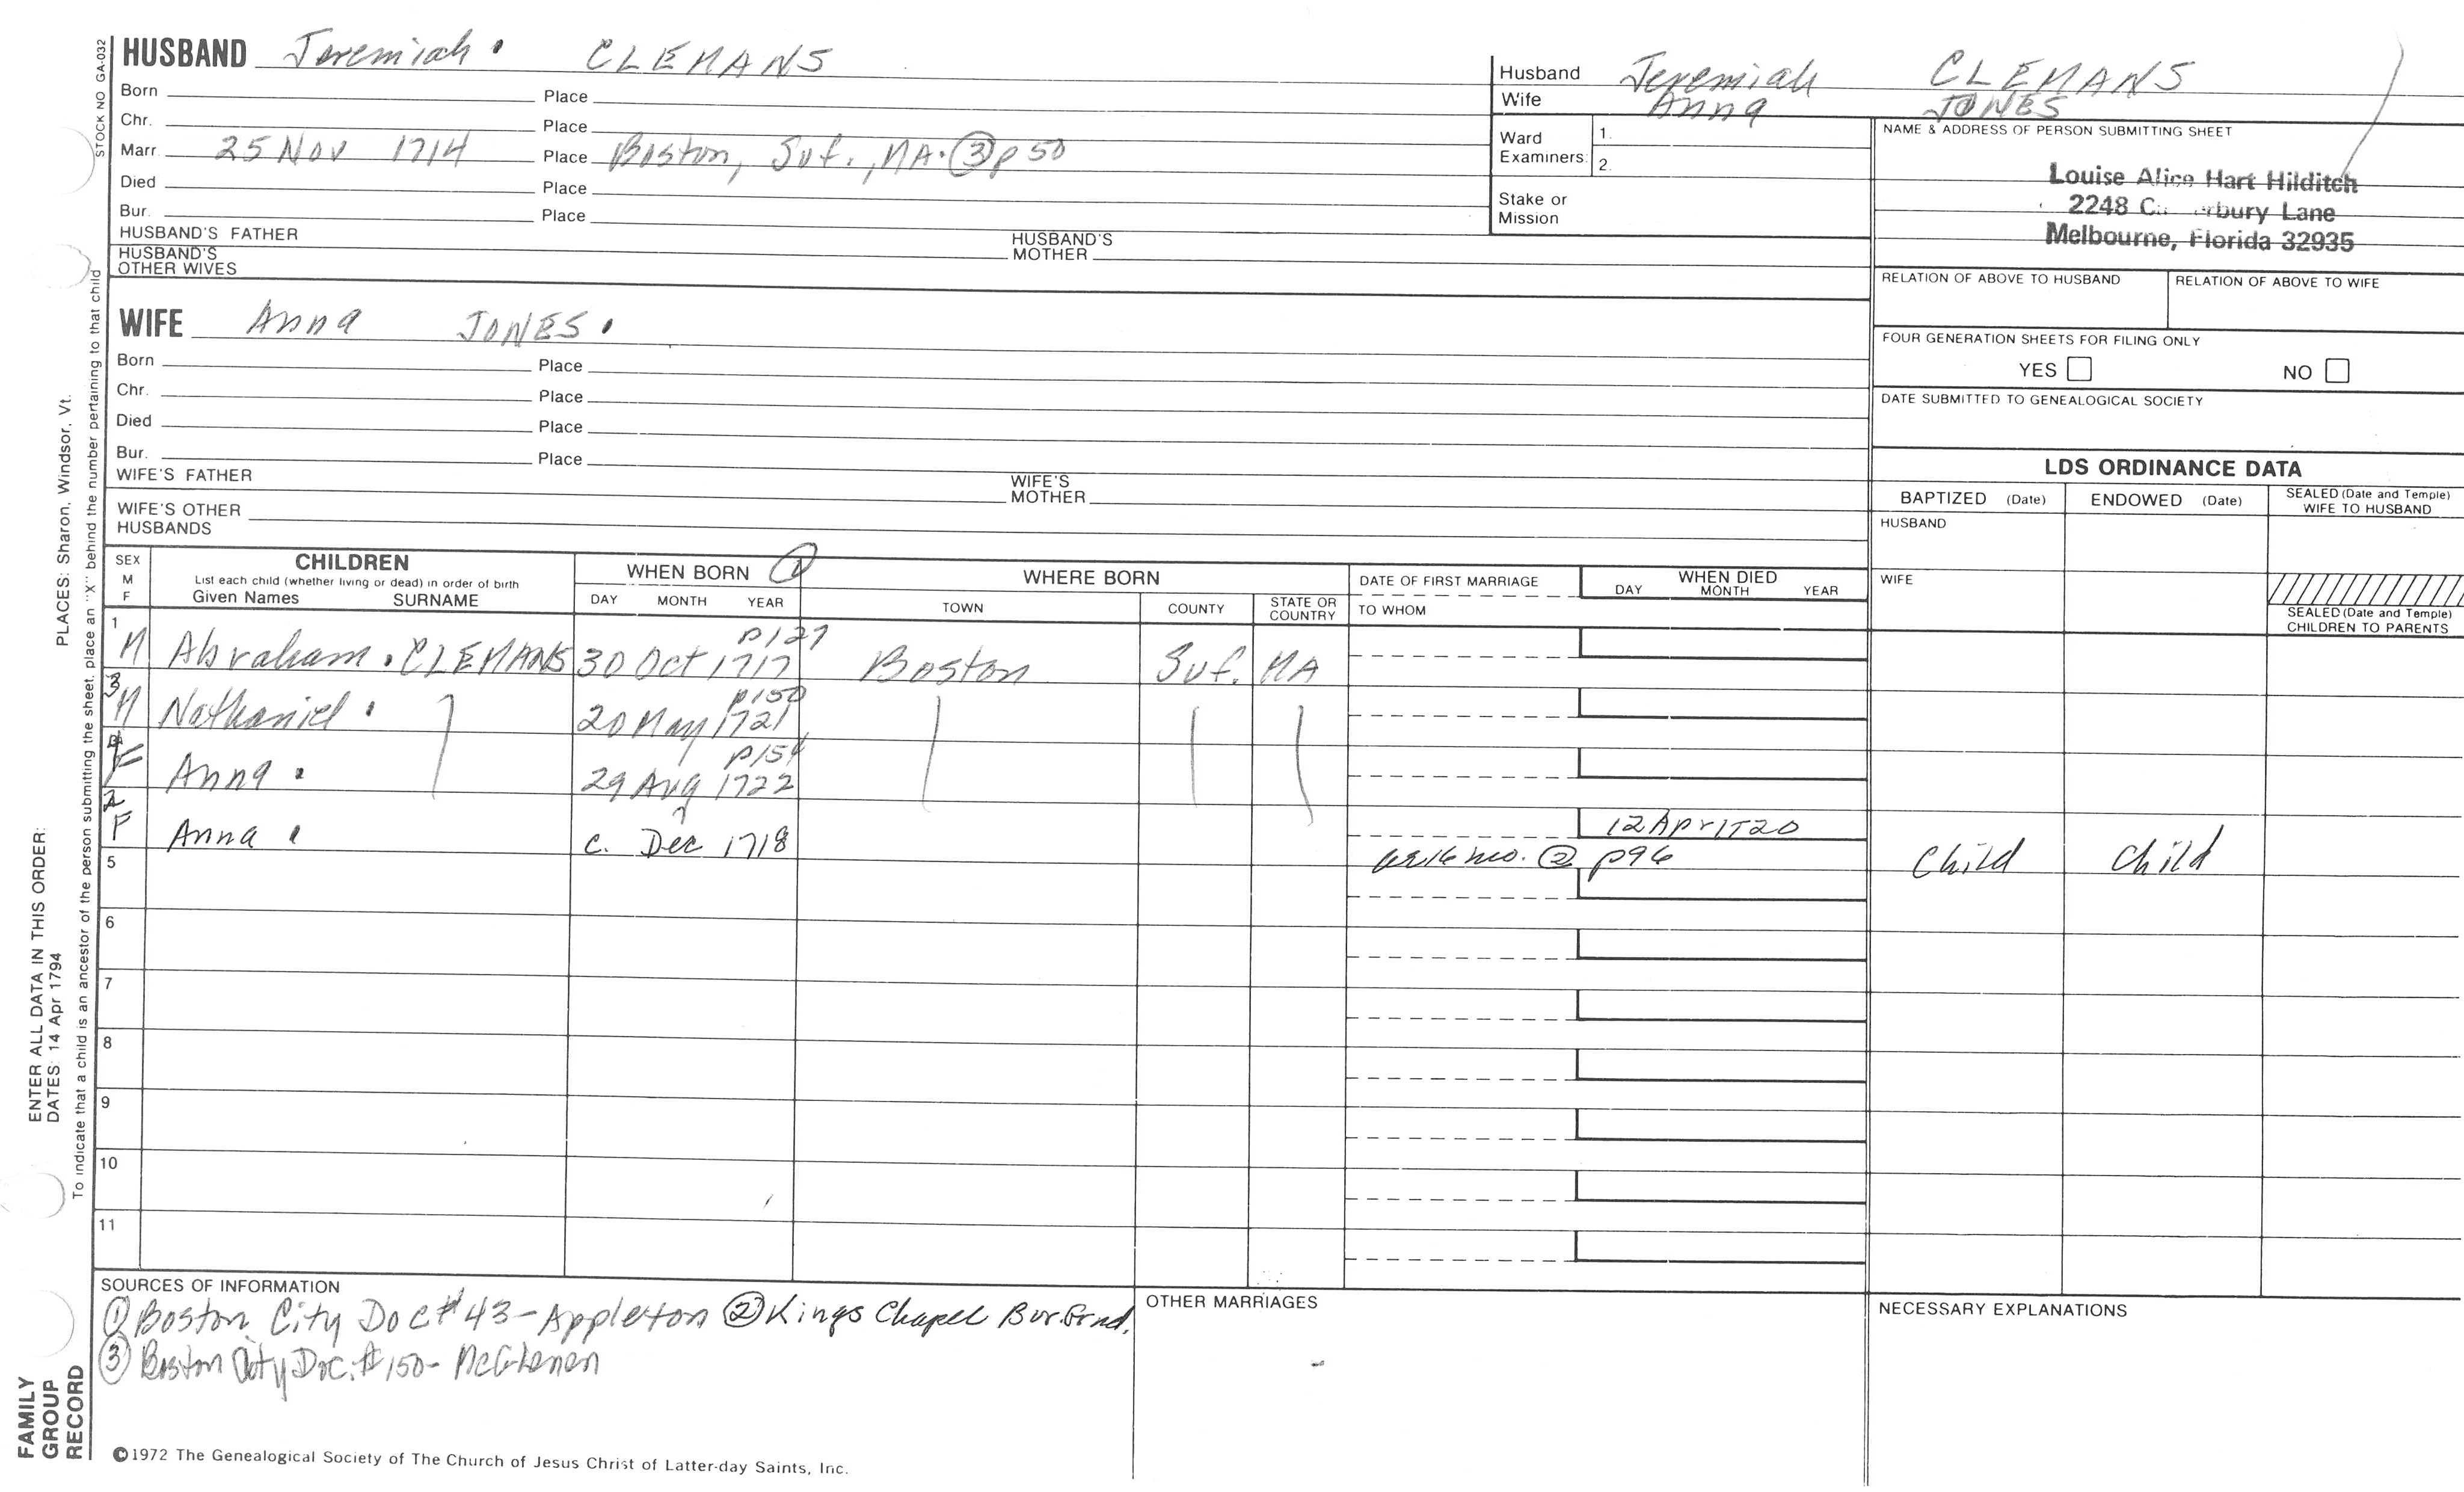 STOCK NO GA-032
HUSBAND Jeremiah . CLEMANS
Born Place
Chr. Place
Marr. 25 Nov 1714 Place Boston, Suf., MA. ③ p 50
Died Place
Bur. Place
HUSBAND'S FATHER HUSBAND'S MOTHER
HUSBAND'S OTHER WIVES
WIFE Anna JONES .
Born Place
Chr. Place
Died Place
Bur. Place
WIFE'S FATHER WIFE'S MOTHER
WIFE'S OTHER HUSBANDS
Husband Jeremiah CLEMANS
Wife Anna JONES
Ward Examiners: 1.
2.
Stake or Mission
NAME & ADDRESS OF PERSON SUBMITTING SHEET
Louise Alice Hart Hilditch
2248 Lane
Melbourne, Florida 32935
RELATION OF ABOVE TO HUSBAND RELATION OF ABOVE TO WIFE
FOUR GENERATION SHEETS FOR FILING ONLY
YES NO
DATE SUBMITTED TO GENEALOGICAL SOCIETY
LDS ORDINANCE DATA
BAPTIZED (Date) ENDOWED (Date) SEALED (Date and Temple) WIFE TO HUSBAND
HUSBAND
WIFE
SEALED (Date and Temple) CHILDREN TO PARENTS
SEX M F CHILDREN WHEN BORN ① WHERE BORN DATE OF FIRST MARRIAGE WHEN DIED
List each child (whether living or dead) in order of birth
Given Names SURNAME DAY MONTH YEAR TOWN COUNTY STATE OR COUNTRY TO WHOM DAY MONTH YEAR
1 p127
M Abraham . CLEMANS 30 Oct 1717 Boston Suf. MA
3 p150
M Nathaniel . 20 May 1721
p154
F Anna . 29 Aug 1722
2
F Anna . c. Dec 1718 12 Apr 1720
5 ae 16 mo. ② p96 Child Child
6
7
8
9
10
11
SOURCES OF INFORMATION
① Boston City Doc # 43 - Appleton ② Kings Chapel Bur. Grnd.
③ Boston City Doc. # 150 - McGlenen
OTHER MARRIAGES
NECESSARY EXPLANATIONS
©1972 The Genealogical Society of The Church of Jesus Christ of Latter-day Saints, Inc.
FAMILY GROUP RECORD
ENTER ALL DATA IN THIS ORDER:
DATES: 14 Apr 1794 PLACES: Sharon, Windsor, Vt.
To indicate that a child is an ancestor of the person submitting the sheet, place an "X" behind the number pertaining to that child